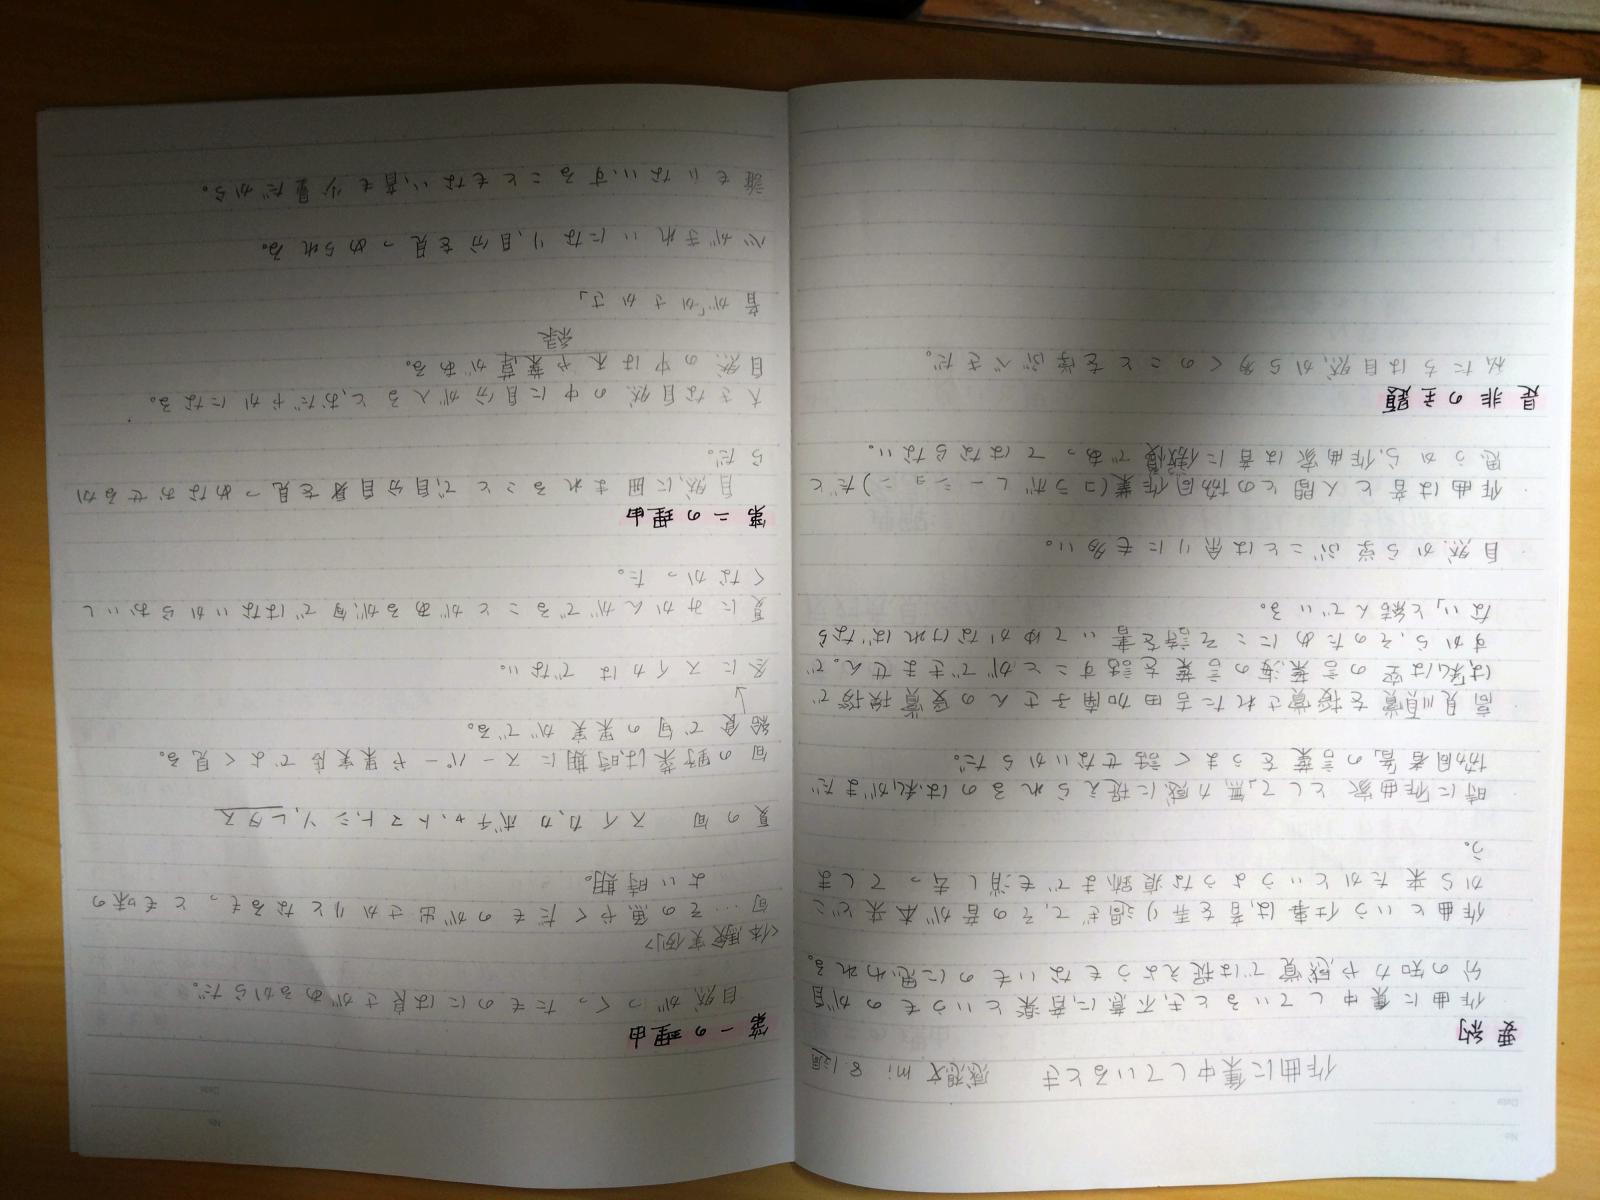 No.
Date
作曲に集中しているとき 感想文 mi 8
要約
作曲に集中しているとき、不意に、音楽というものが自
分の知力や、感覚では捉えようもないものに思われる。
作曲という仕事は、音を弄り過ぎて、その音が本来どこ
から来たかというような痕跡までも消し去ってしま
う。
時に作曲家として、無力感に捉えられるのは、私がまだ
協同者、音の言葉をうまく話せないからだ。
高見順賞を授賞された吉田加南子さんの受賞挨拶で
は、「私は空の言葉、海の言葉を話すことができません。で
すから、そのためにこそ詩を書いてゆかなければなら
ない」と結んでいる。
自然から学ぶことは余りにも多い。
作曲は音と人間との協同作業(コラボレーション)だと
思うから、作曲家は音に傲慢であってはならない。
是非の主題
私たちは自然から多くのことを学ぶべきだ。
No.
Date
第一の理由
自然がつくったものには良さがあるからだ。
<体験実例>
旬…その魚やくだものが出さかりとなるもっとも味の
よい時期。
夏の旬 スイカ、カボチャ、トマト、シソ、レタス
旬の野菜は、時期にスーパーや果実店でよく見る。
給食で旬の果実がでる。
冬にスイカはでない。
夏にみかんがでることがあるが、旬ではないからおいし
くなかった。
第二の理由
自然に囲まれることで、自分自身を見つめなおせるか
らだ。
大きな自然の中に自分が入ると、おだやかになる。
自然の中は木や葉、草がある。
緑
音が「かさかさ」
心がきれいになり、自分を見つめられる。
誰もいない、することもない、音も少量だから。